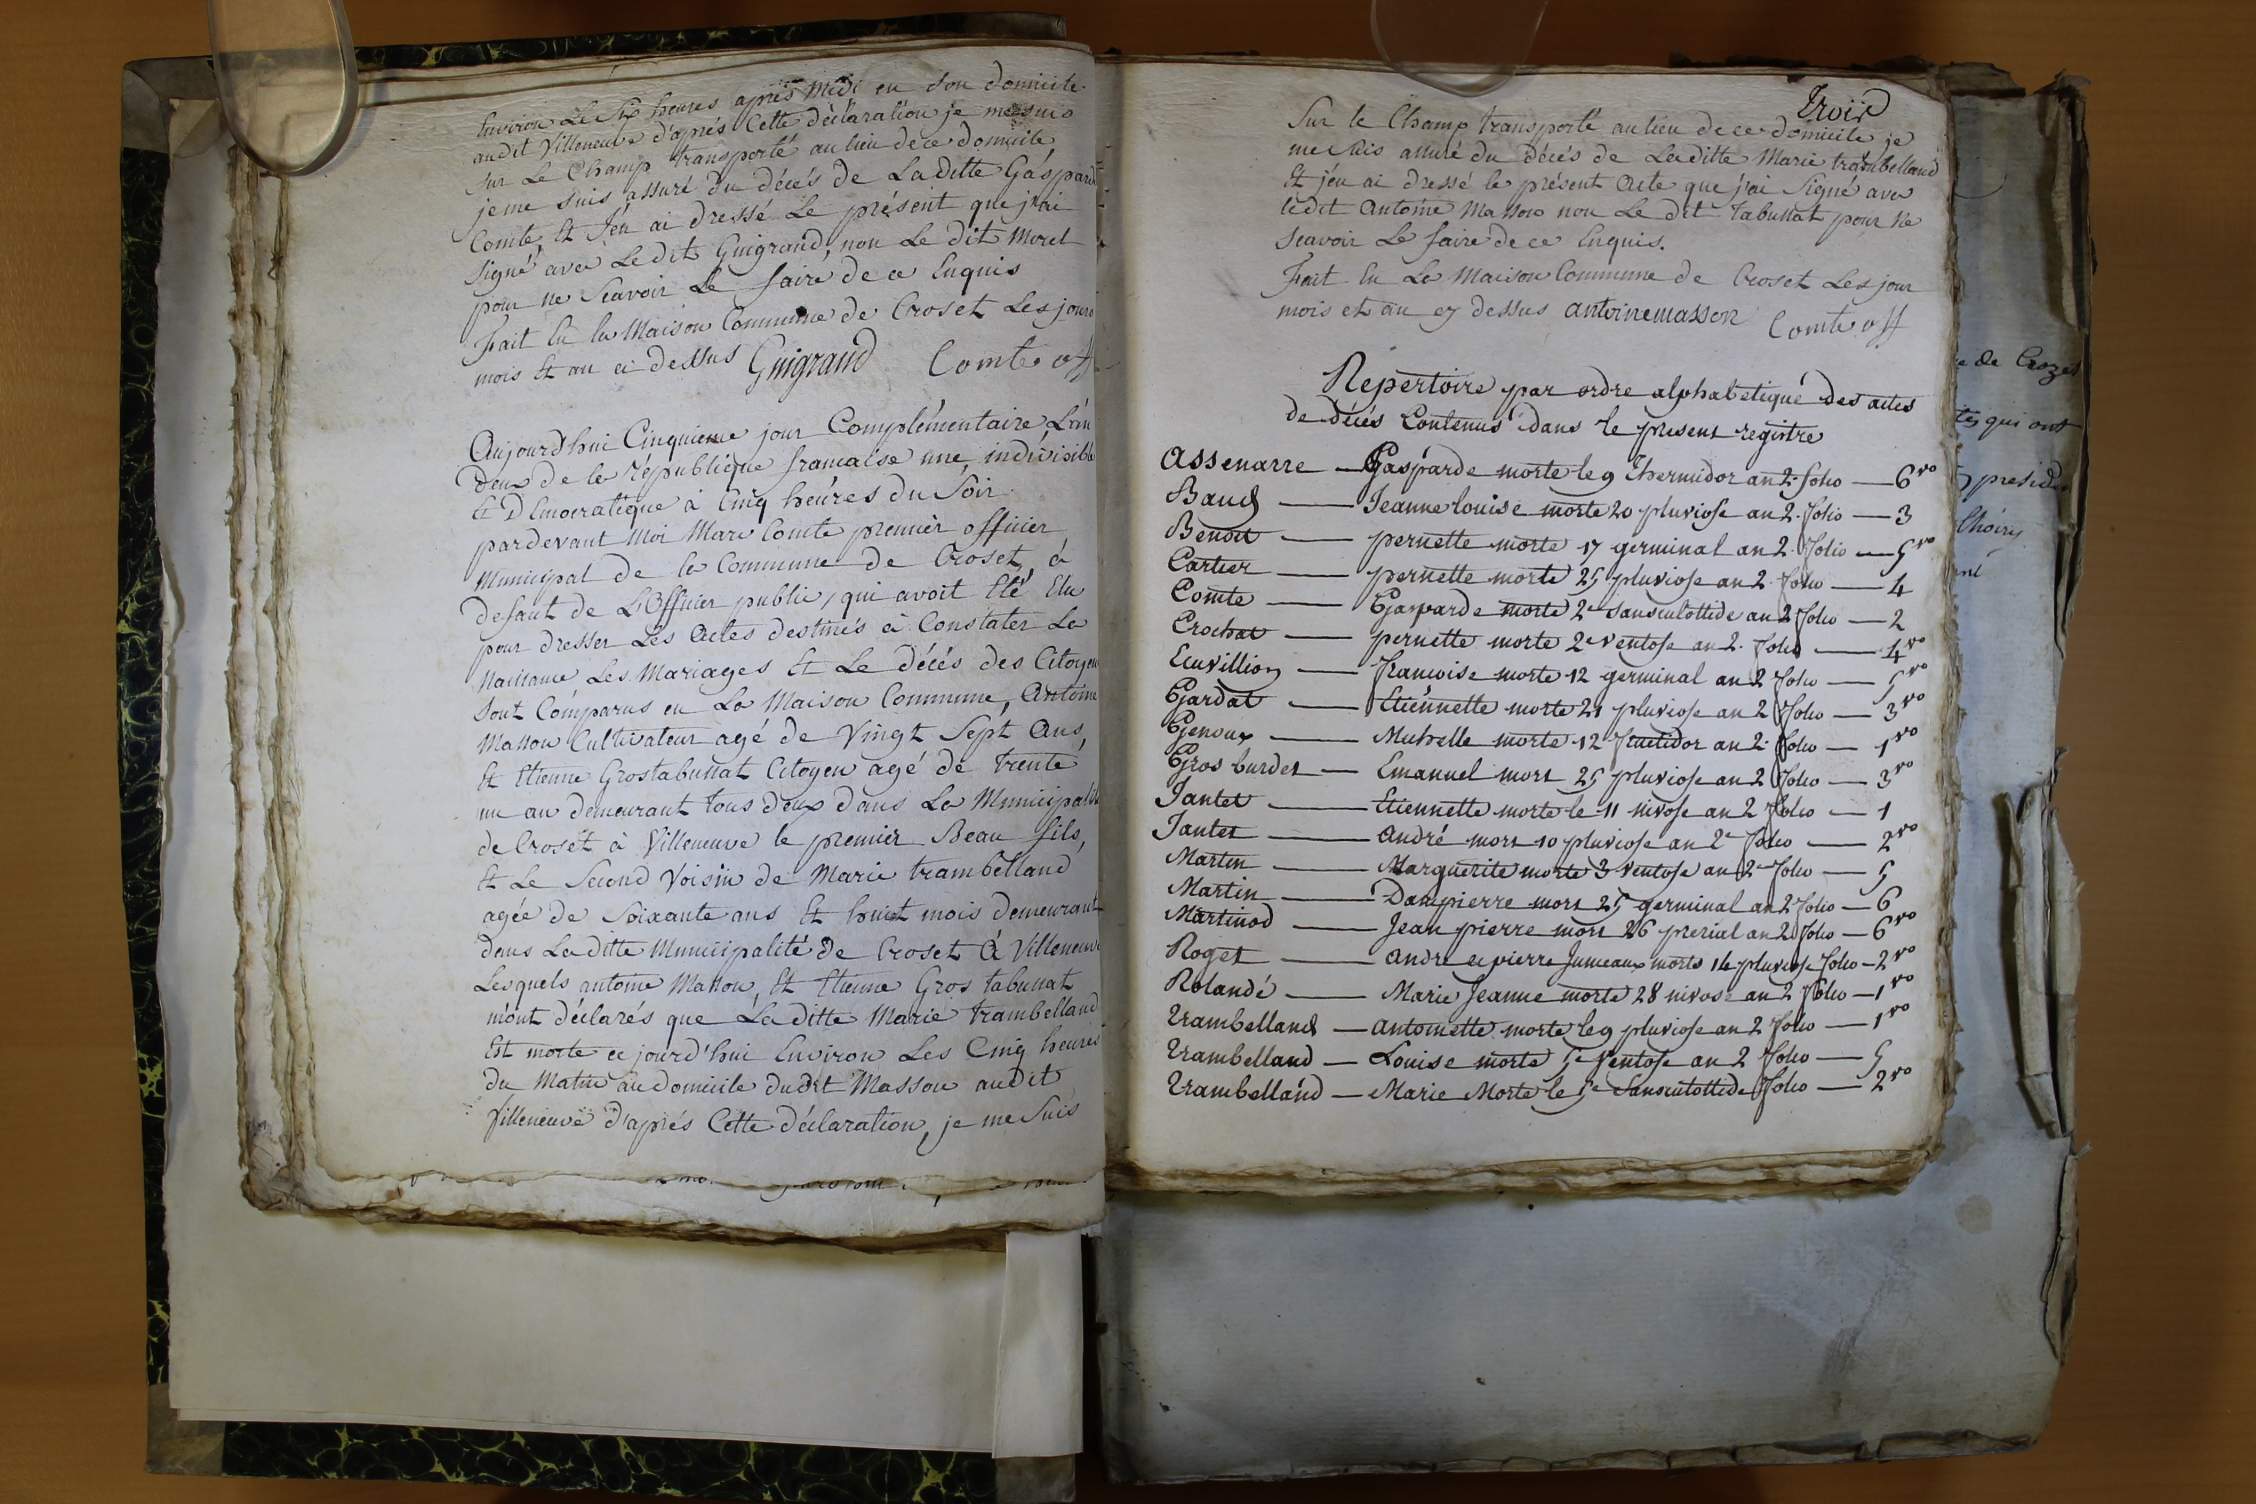 Environ Les Six heures après Midi en son domicile
audit Villeneuve d'après Cette déclaration je me suis
sur Le Champ transporté au lieu de ce domicile
je me suis assuré du décés de La ditte Gaspard
Comte Et J'én ai dressé Le présent que j'ai
signé avec Ledit Guigrand, non Le dit Morel
pour ne Scavoir Le faire de ce Enquis
Fait En la Maison Commune de Croset Les jours
mois Et an ci dessus Guigrand Comte off
Aujourd'hui Cinquieme jour Complémentaire L'an
Deux de la république francaise une indivisible
Et Démocratique à Cinq heures du Soir
pardevant Moi Marc Comte premier officier
Municipal de la Commune de Croset, à
defaut de L'Officier public, qui avoit Eté Elu
pour dresser Les Actes destinés à Constater La
Naissance Les Mariages Et Le décés des Citoyen
Sont Comparus en La Maison Commune, Antoine
Masson Cultivateur agé de Vingt Sept Ans,
Et Etienne Grostabussat Citoyen agé de trente
un an demeurant tous deux dans La Municipalité
de Croset à Villeneuve le premier Beau fils,
Et Le Second Voisin de Marie trambelland
agée de Soixante ans Et huit mois demeurant
dans La ditte Municipalité de Croset à Villeneuve
Lesquels antoine Masson, Et Etienne Gros tabussat
m'ont déclarés que La ditte Marie trambelland
Est morte ce jourd'hui Environ Les Cinq heures
du Matin au domicile dudit Masson audit
Villeneuve d'après Cette déclaration, je me Suis
Trois
Sur le Champ transporté au lieu de ce domicile je
me suis assuré du décés de La ditte Marie trambelland
Et j'en ai dressé le présent Acte que j'ai Signé avec
ledit Antoine Masson non Le dit tabussat pour Ne
Scavoir Le faire de ce Enquis.
Fait En La Maison Commune de Croset Les jour
mois et an cy dessus antoine masson Comte off
Repertoire par ordre alphabetique des actes
de décés Contenus dans le present registre
Assenarre — Gasparde morte le 9 Thermidor an 2. folio — 6 vo
Baud — Jeanne louise morte 20 pluviose an 2. folio — 3
Benoit — pernette morte 17 germinal an 2. folio — 5 vo
Cartier — pernette morte 25 pluviose an 2. folio — 4
Comte — Gasparde morte 2e sansculottide an 2 folio — 2
Crochat — pernette morte 2e ventose an 2. folio — 4 vo
Ecuvillion — francoise morte 12 germinal an 2 folio — 5 vo
Gardat — Etiennette morte 21 pluviose an 2 folio — 3 vo
Genoux — Michelle morte 12 fructidor an 2. folio — 1 vo
Gros burdet — Emanuel mort 25 pluviose an 2 folio — 3 vo
Jantet — Etiennette morte le 11 nivose an 2 folio — 1
Jantet — André mort 10 pluviose an 2e folio — 2 vo
Martin — Marguerite morte 3 ventose an 2 folio — 5
Martin — Dampierre mort 25 germinal an 2 folio — 6
Martinod — Jean pierre mort 26 prerial an 2 folio — 6 vo
Roget — andre et pierre Jumeaux morts 14 pluviose folio — 2 vo
Rolandé — Marie Jeanne morte 28 nivose an 2 folio — 1 vo
Trambelland — antoinette morte le 9 pluviose an 2 folio — 1 vo
Trambelland — Louise morte 5e ventose an 2 folio — 5
Trambelland — Marie Morte le 5e Sansculottide folio — 2 vo
de Crozet
qui ont
presid